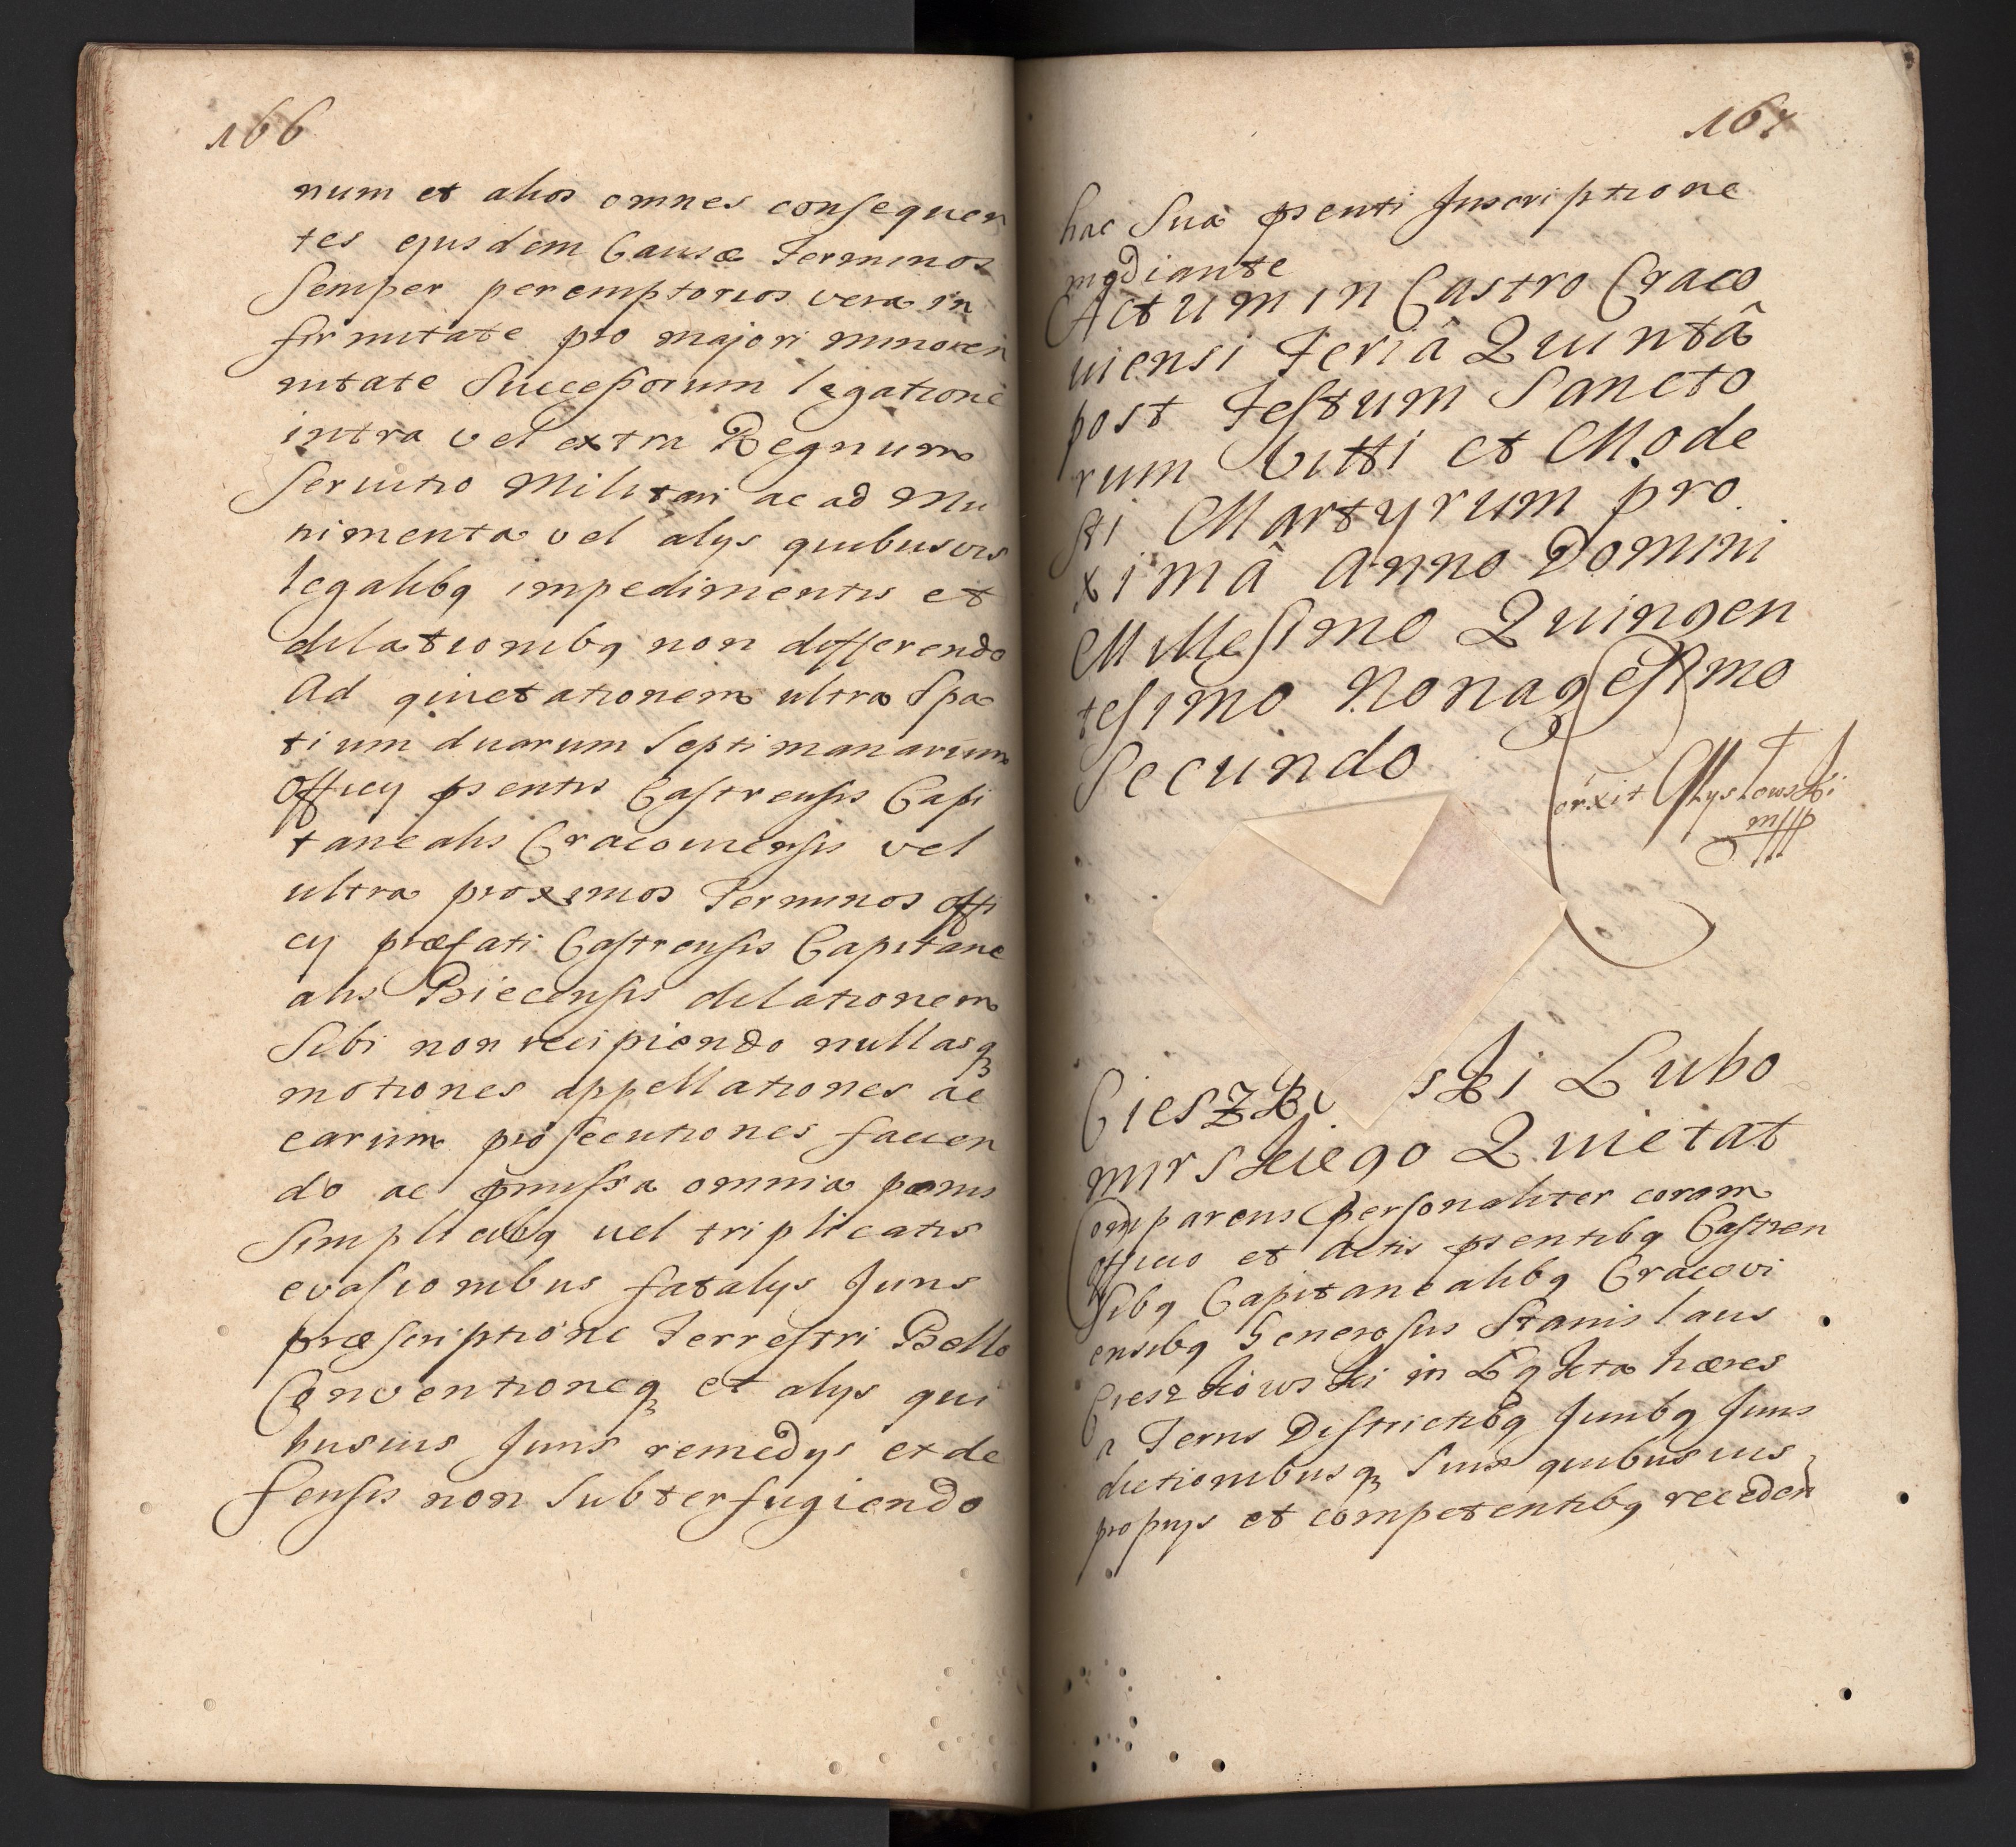 166
num et alios omnes consequen
tes ejusdem Causæ Terminos
Semper peremptorios vera in
firmitate pro majori minoren
nitate Successorum legatione
intra vel extra Regnum
Servitio Militari ac ad Mu
nimenta vel alys quibusvis
legalibq impedimentis et
dilationibq non differendo
Ad quietationem ultra Spa
tium duarum Septimanarum
Officy psentis Castrensis Capi
tanealis Cracoviensis vel
ultra proximos Terminos offi
cy præfati Castrensis Capitane
alis Biecensis dilationem
Sibi non recipiendo nullasq
motiones appellationes ac
earum prosecutiones facien
do ac pmissa omnia pœnis
Simplicibq vel triplicatis
evasionibus fatalys Juris
præscriptione Terrestri Bello
Conventioneq et alys qui
busvis Juris remedys et de
fensis non Subterfugiendo
167
hac Sua psenti Inscriptione
mediante
Actum in Castro Craco
viensi Feriâ Quintâ
post Festum Sancto
rum Vitti et Mode
sti Martyrum pro
ximâ Anno Domini
Millesimo Quingen
tesimo Nonagesimo
Secundo
orxit
mpp
Cieszk ski Lubo
mirskiego Quietat
Comparens personaliter coram
officio et actis psentibq Castren
sibq Capitanealibq Cracovi
ensibq Generosus Stanislaus
Cieszkowski in hæres
a Terris Districtibq Juribq Juris
dictionibusq Suis quibusvis
propriys et competentibq receden